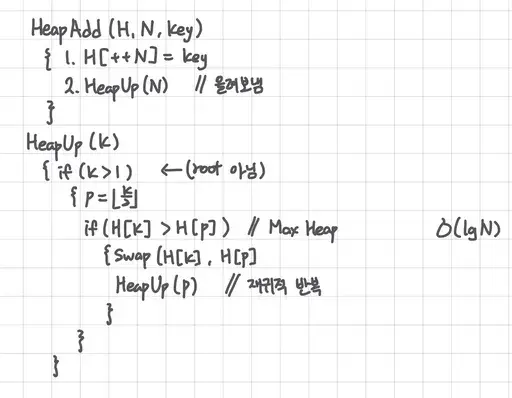 HeapAdd (H, N, key)
{ 1. H[++N] = key
2. HeapUp(N) // 올려보냄
}
HeapUp (k)
{ if (k>1) ← (root 아님)
{ p = ⌊k/2⌋
if (H[k] > H[p]) // Max Heap O(lgN)
{ Swap (H[k], H[p]
HeapUp(p) // 재귀적 반복
}
}
}